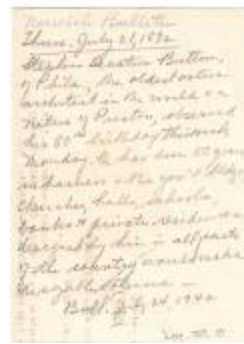 Norwich Bulletin
Thurs. July 21, 1892
Stephen Decatur Button,
of Phila, the oldest active
architect in the world & a
native of Preston, observed
his 80th birthday
Monday. He has been 50 years
in business & the gov't bldgs,
churches, halls, schools,
banks & private residences
designed by him in all parts
of the country would make
a sizable
July 24 1942